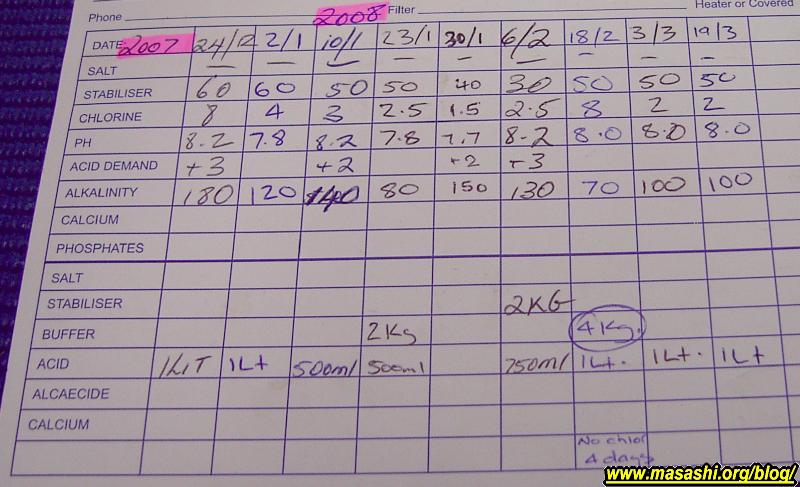 Phone 2008 Filter Heater or Covered
DATE 2007 24/12 2/1 10/1 23/1 30/1 6/2 18/2 3/3 19/3
SALT — — — — — — — — —
STABILISER 60 60 50 50 40 30 50 50 50
CHLORINE 8 4 3 2.5 1.5 2.5 8 2 2
PH 8.2 7.8 8.2 7.8 7.7 8.2 8.0 8.0 8.0
ACID DEMAND +3 +2 +2 +3
ALKALINITY 180 120 140 80 150 130 70 100 100
CALCIUM
PHOSPHATES
SALT
STABILISER 2KG
BUFFER 2Kg 4Kg.
ACID 1LiT 1Lt 500ml 500ml 750ml 1Lt. 1Lt. 1Lt
ALCAECIDE
CALCIUM
No chlor
4 days
www.masashi.org/blog/